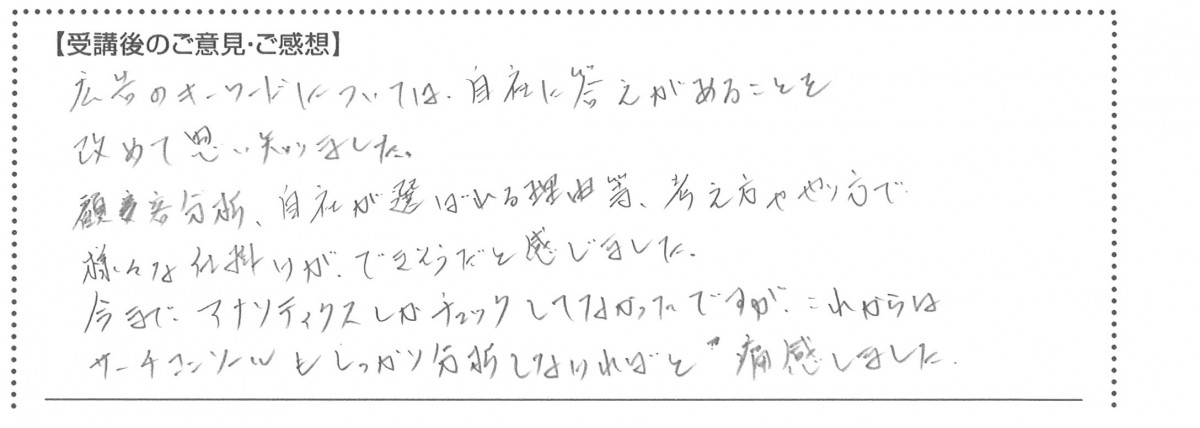 【受講後のご意見・ご感想】
広告のキーワードについては、自社に答えがあることを
改めて思い知りました。
顧客分析、自社が選ばれる理由等、考え方ややり方で
様々な仕掛けが、できそうだと感じました。
今まで、アナリティクスしかチェックしてなかったですが、これからは
サーチコンソールもしっかり分析しなければと痛感しました。